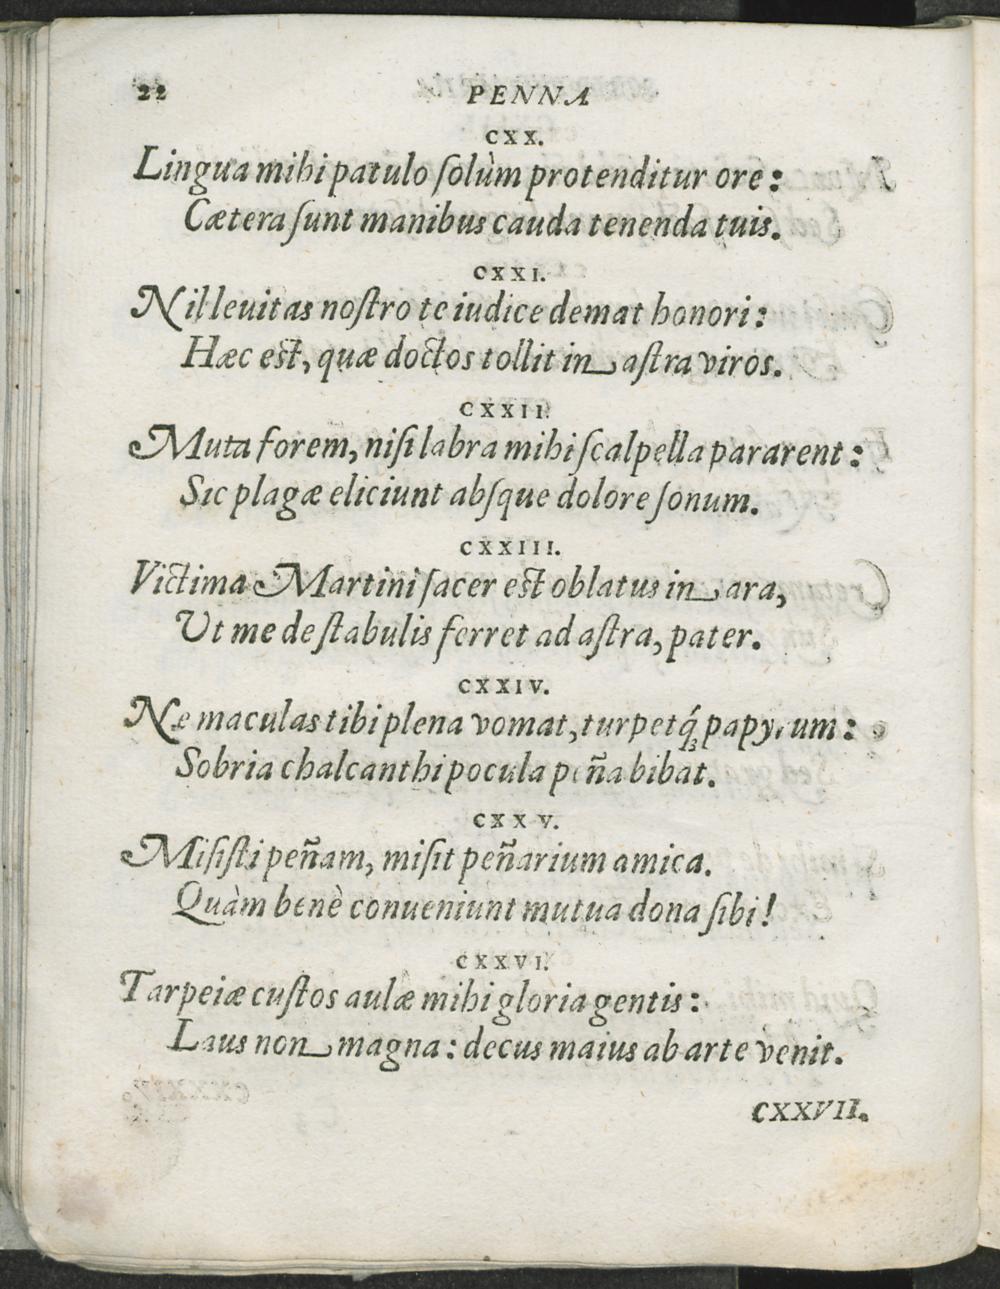 22
PENNA
CXX.
Lingua mihi patulo ſolùm protenditur ore:
Cætera ſunt manibus cauda tenenda tuis.
CXXI.
Nil leuitas noſtro te iudice demat honori:
Hæc est, quæ doctos tollit in aſtra viros.
CXXII.
Muta forem, niſi labra mihi ſcalpella pararent:
Sic plagæ eliciunt abſque dolore ſonum.
CXXIII.
Victima Martini ſacer est oblatus in ara,
Ut me de ſtabulis ferret ad aſtra, pater.
CXXIV.
Ne maculas tibi plena vomat, turpetq́ꝫ papyrum:
Sobria chalcanthi pocula peña bibat.
CXXV.
Miſiſti peñam, miſit peñarium amica.
Quàm benè conueniunt mutua dona ſibi!
CXXVI.
Tarpeiæ cuſtos aulæ mihi gloria gentis:
Laus non magna: decus maius ab arte venit.
CXXVII.